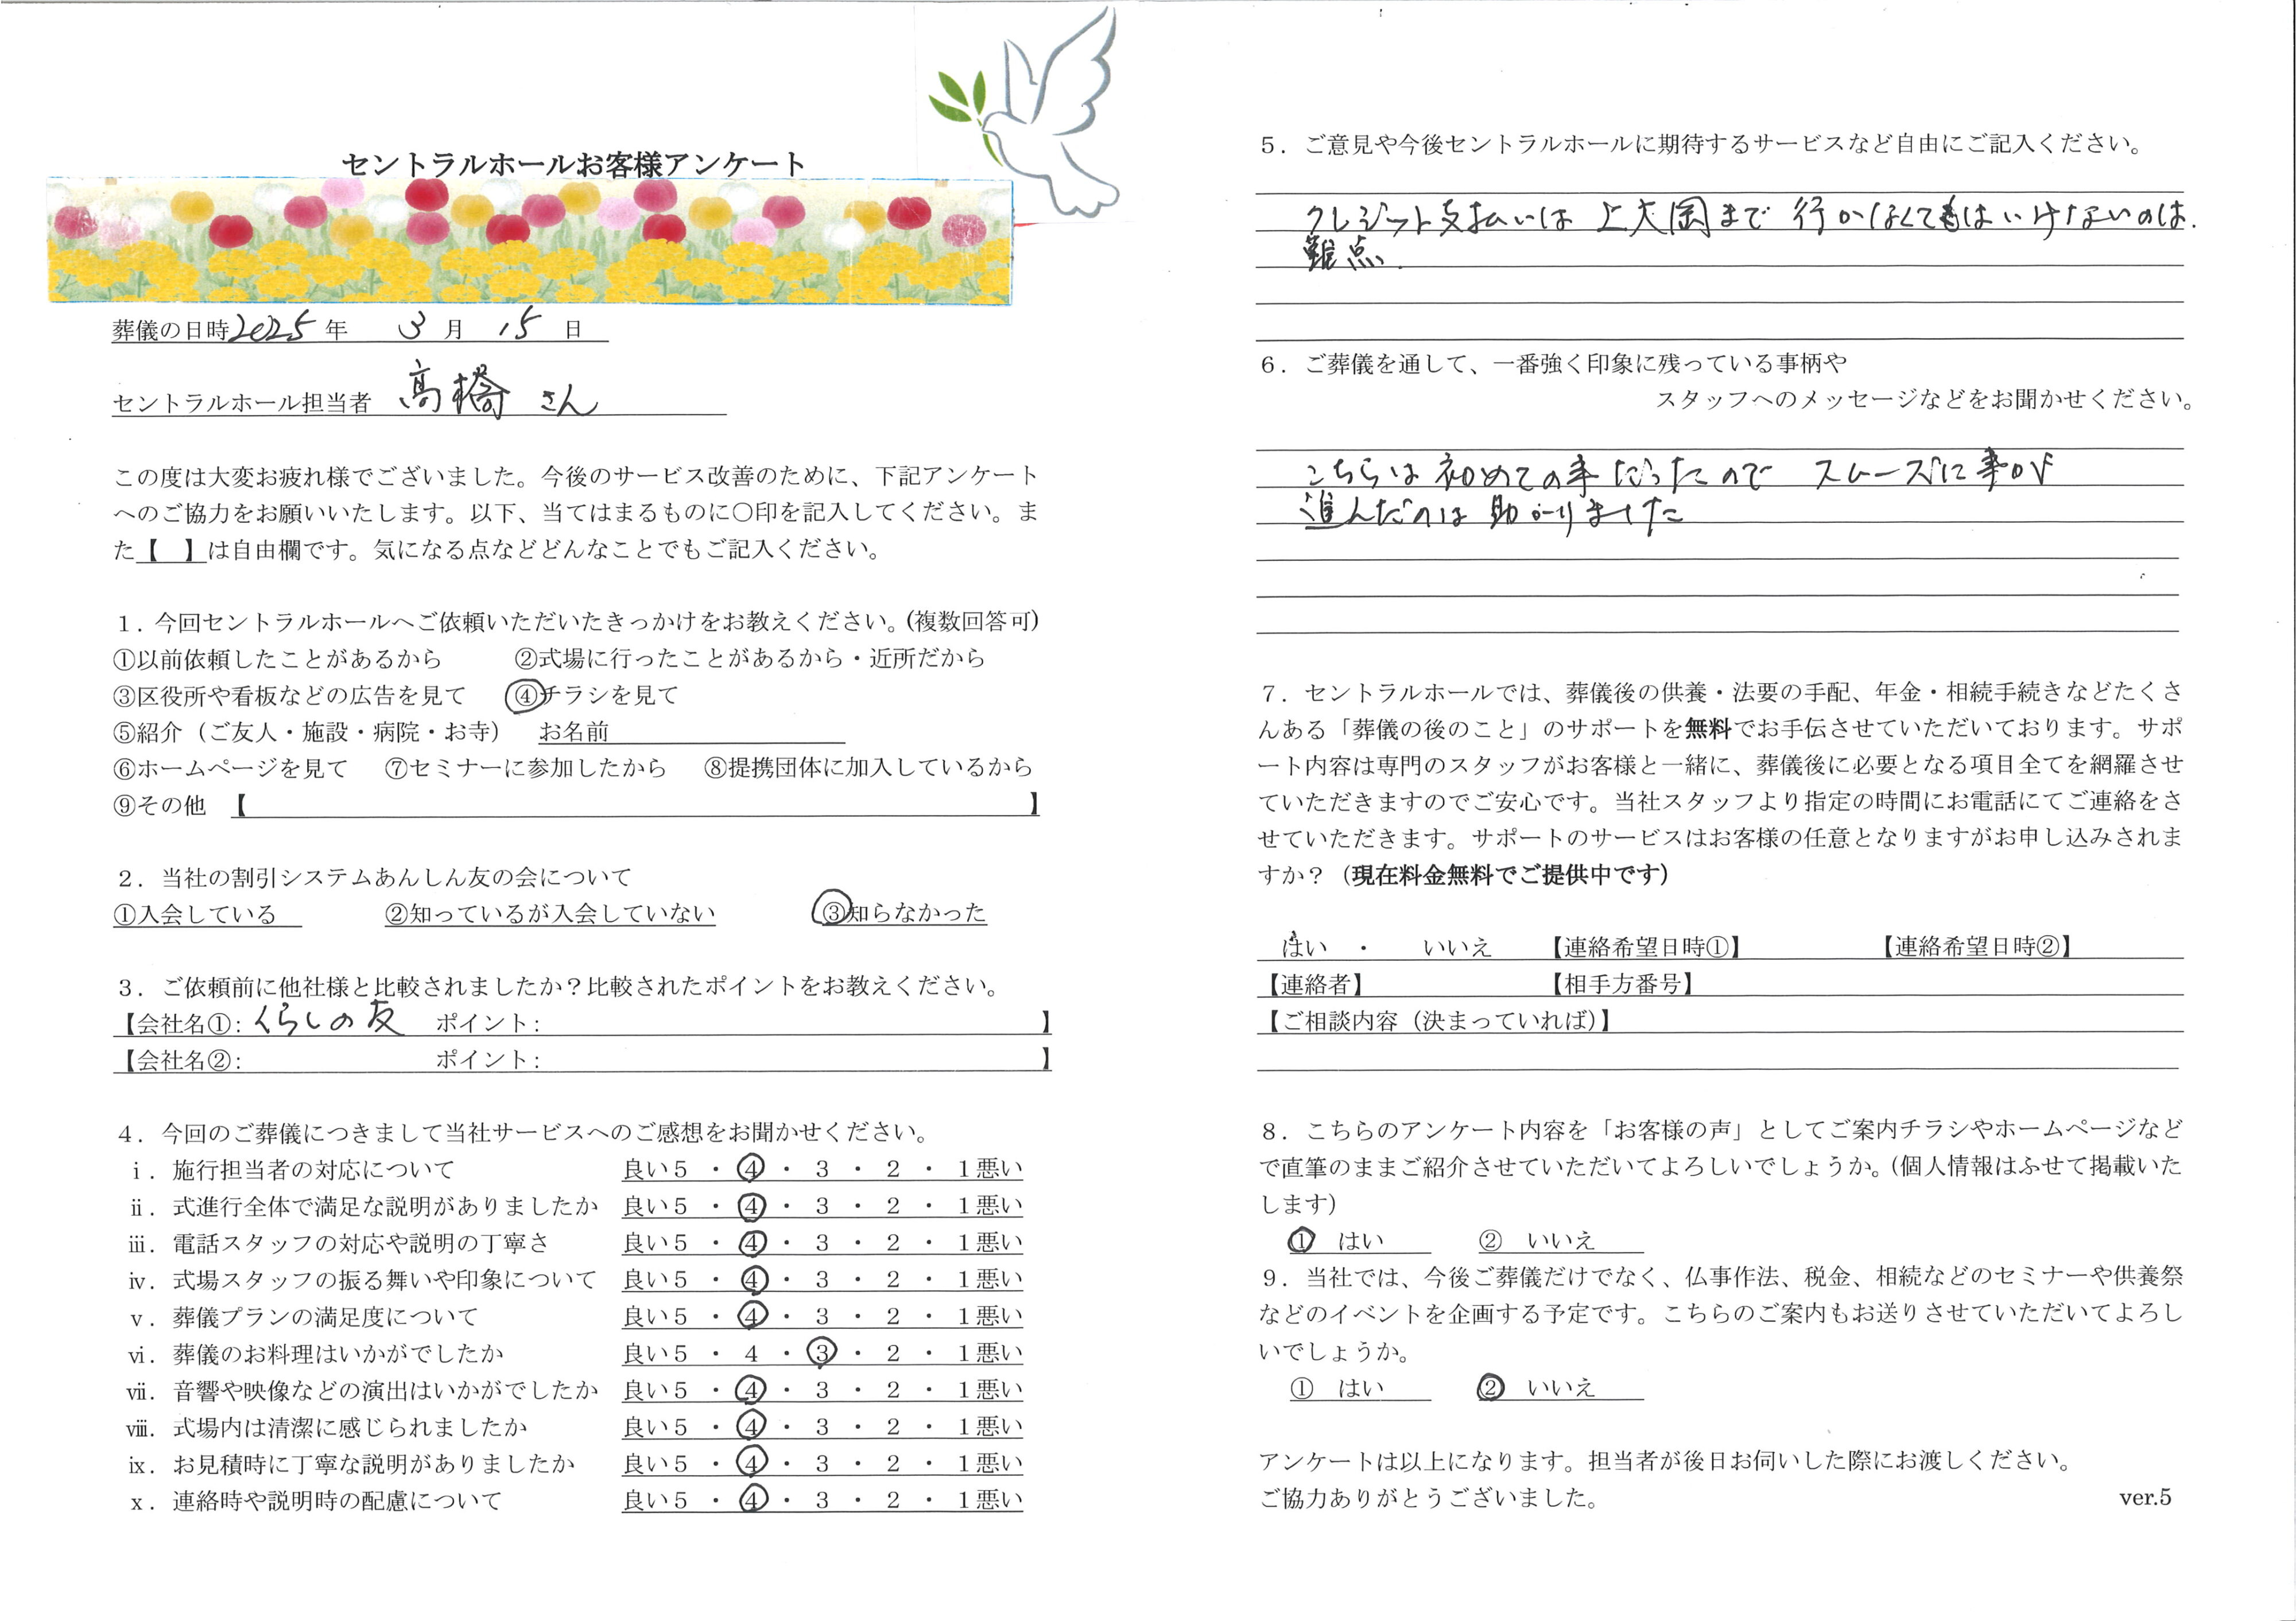 セントラルホールお客様アンケート
葬儀の日時2025年 3月 15日
セントラルホール担当者 髙橋さん
この度は大変お疲れ様でございました。今後のサービス改善のために、下記アンケート
へのご協力をお願いいたします。以下、当てはまるものに〇印を記入してください。ま
た【 】は自由欄です。気になる点などどんなことでもご記入ください。
1.今回セントラルホールへご依頼いただいたきっかけをお教えください。(複数回答可)
①以前依頼したことがあるから ②式場に行ったことがあるから・近所だから
③区役所や看板などの広告を見て ④チラシを見て
⑤紹介(ご友人・施設・病院・お寺) お名前
⑥ホームページを見て ⑦セミナーに参加したから ⑧提携団体に加入しているから
⑨その他 【 】
2.当社の割引システムあんしん友の会について
①入会している ②知っているが入会していない ③知らなかった
3.ご依頼前に他社様と比較されましたか?比較されたポイントをお教えください。
【会社名①:くらしの友 ポイント: 】
【会社名②: ポイント: 】
4.今回のご葬儀につきまして当社サービスへのご感想をお聞かせください。
ⅰ.施行担当者の対応について 良い5・④・3・2・1悪い
ⅱ.式進行全体で満足な説明がありましたか 良い5・④・3・2・1悪い
ⅲ.電話スタッフの対応や説明の丁寧さ 良い5・④・3・2・1悪い
ⅳ.式場スタッフの振る舞いや印象について 良い5・④・3・2・1悪い
ⅴ.葬儀プランの満足度について 良い5・④・3・2・1悪い
ⅵ.葬儀のお料理はいかがでしたか 良い5・4・③・2・1悪い
ⅶ.音響や映像などの演出はいかがでしたか 良い5・④・3・2・1悪い
ⅷ.式場内は清潔に感じられましたか 良い5・④・3・2・1悪い
ⅸ.お見積時に丁寧な説明がありましたか 良い5・④・3・2・1悪い
ⅹ.連絡時や説明時の配慮について 良い5・④・3・2・1悪い
5.ご意見や今後セントラルホールに期待するサービスなど自由にご記入ください。
クレジット支払いは 上大岡まで 行かなくてはいけないのは.
難点.
6.ご葬儀を通して、一番強く印象に残っている事柄や
スタッフへのメッセージなどをお聞かせください。
こちらは初めての事だったので スムーズに事が
進んだのは助かりました
7.セントラルホールでは、葬儀後の供養・法要の手配、年金・相続手続きなどたくさ
んある「葬儀の後のこと」のサポートを無料でお手伝させていただいております。サポ
ート内容は専門のスタッフがお客様と一緒に、葬儀後に必要となる項目全てを網羅させ
ていただきますのでご安心です。当社スタッフより指定の時間にお電話にてご連絡をさ
せていただきます。サポートのサービスはお客様の任意となりますがお申し込みされま
すか?(現在料金無料でご提供中です)
はい ・ いいえ 【連絡希望日時①】 【連絡希望日時②】
【連絡者】 【相手方番号】
【ご相談内容(決まっていれば)】
8.こちらのアンケート内容を「お客様の声」としてご案内チラシやホームページなど
で直筆のままご紹介させていただいてよろしいでしょうか。(個人情報はふせて掲載いた
します)
① はい ② いいえ
9.当社では、今後ご葬儀だけでなく、仏事作法、税金、相続などのセミナーや供養祭
などのイベントを企画する予定です。こちらのご案内もお送りさせていただいてよろし
いでしょうか。
① はい ② いいえ
アンケートは以上になります。担当者が後日お伺いした際にお渡しください。
ご協力ありがとうございました。 ver.5